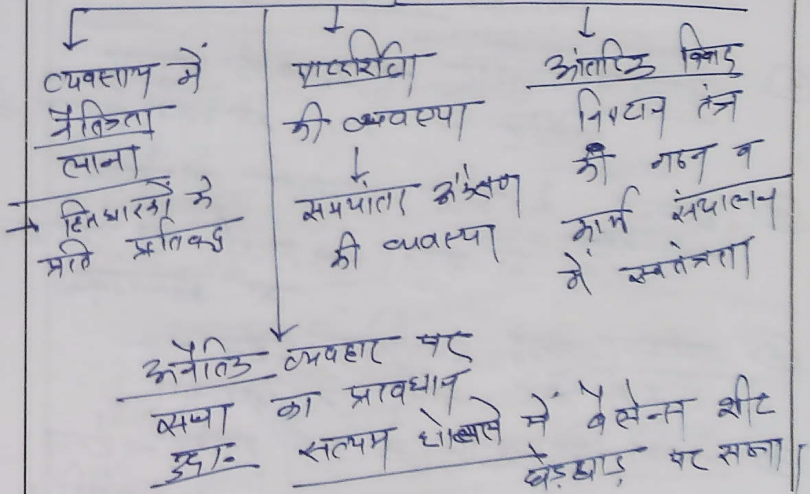 व्यवसाय में
नैतिकता
लाना
→ हितधारकों के
प्रति प्रतिबद्ध
पारदर्शिता
की व्यवस्था
↓
अंकेक्षण
की व्यवस्था
आंतरिक विवाद
निपटान तंत्र
की गठन व
कार्य संचालन
में स्वतंत्रता
अनैतिक व्यवहार पर
सजा का प्रावधान
उदा:- सत्यम घोटाले में बैलेन्स शीट
छेड़छाड़ पर सजा।